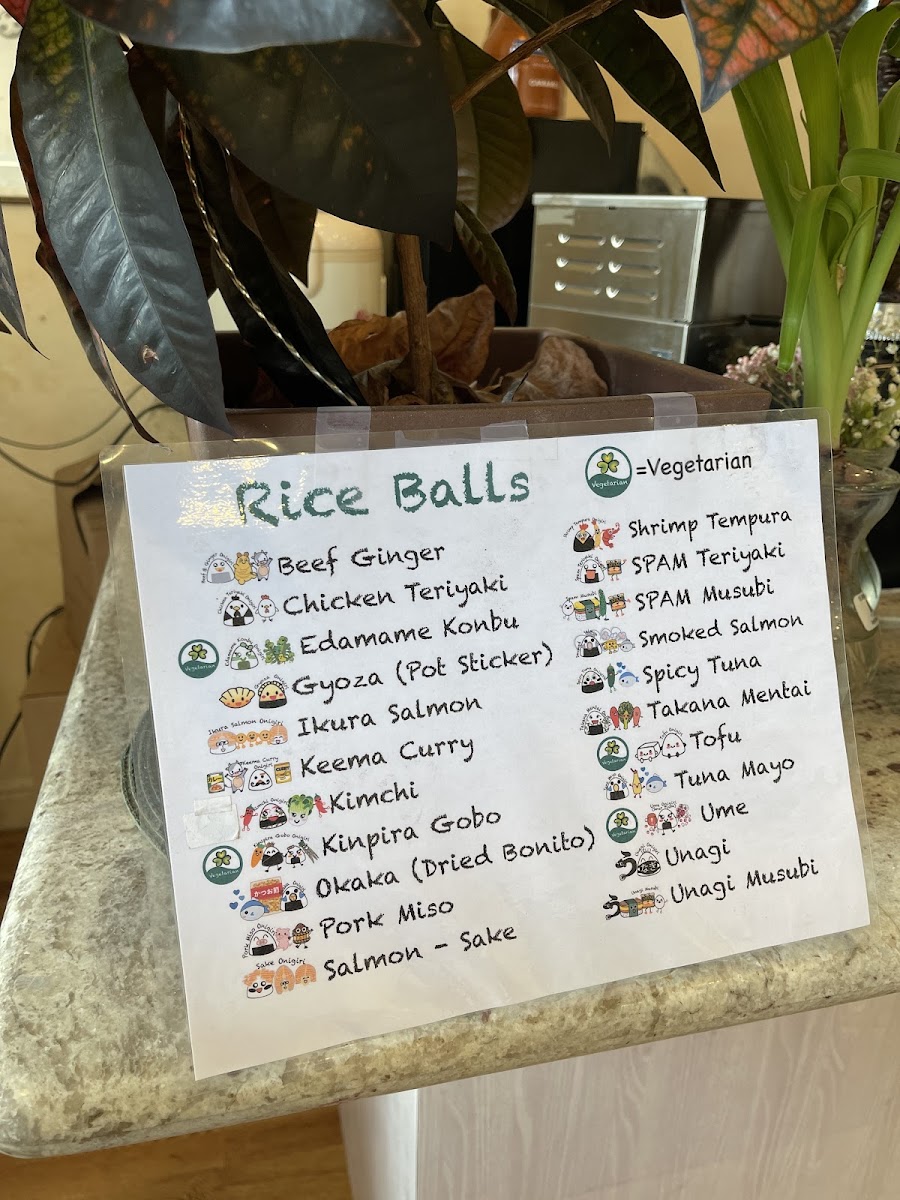 Rice Balls
Vegetarian =Vegetarian
Beef Ginger
Chicken Teriyaki
Vegetarian Edamame Konbu
Gyoza (Pot Sticker)
Ikura Salmon Onigiri Ikura Salmon
Keema Curry Onigiri Keema Curry
Kimchi Onigiri Kimchi
Vegetarian Kinpira Gobo Onigiri Kinpira Gobo
かつお節 Okaka (Dried Bonito)
Pork Miso Onigiri Pork Miso
Sake Onigiri Salmon - Sake
Shrimp Tempura
SPAM Teriyaki
SPAM Musubi SPAM Musubi
Smoked Salmon
Spicy Tuna
Takana Mentai
Vegetarian Tofu
Tuna Mayo
Vegetarian Ume
Unagi
Unagi Musubi Unagi Musubi